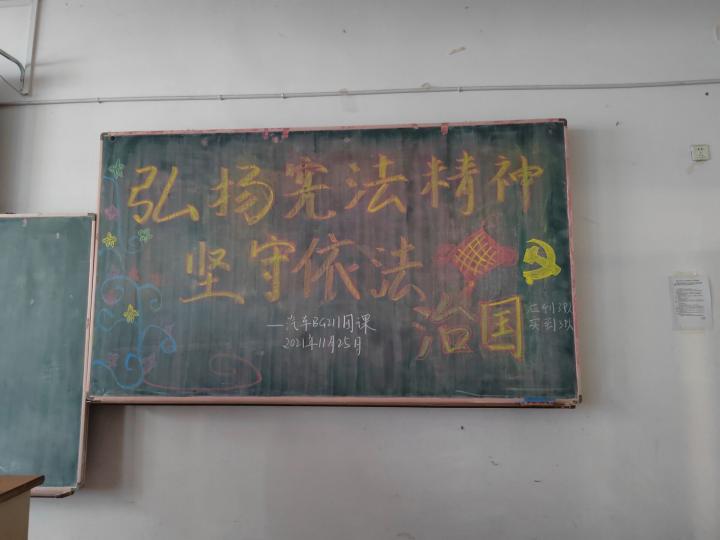 弘扬宪法精神
坚守依法
治国
—汽车BG211团课
2021年11月25日
应到31人
实到31人